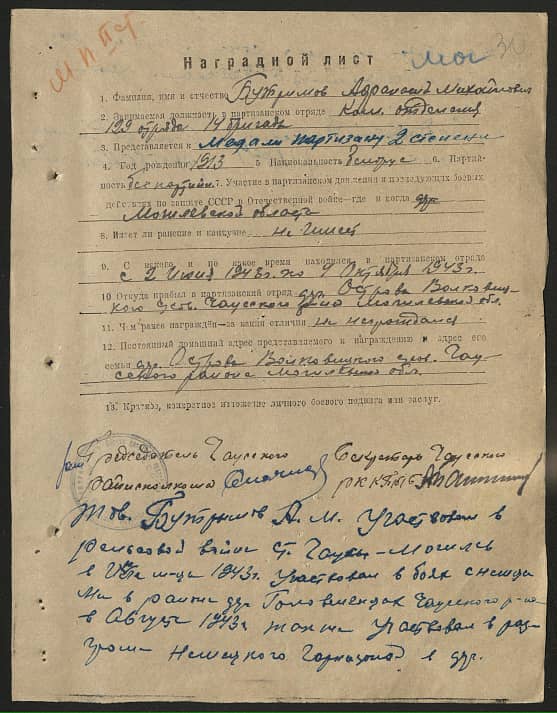 МППЧ
Мог 30
Наградной лист
1. Фамилия, имя и отчество Бутримов Афанасий Михайлович
2. Занимаемая должность в партизанском отряде Ком. отделения
129 отряда 14 бригада
3. Представляется к Медали партизану 2 степени
4. Год рождения 1913 5 Национальность белорус 6. Партий-
ность беспартийн 7. Участие в партизанском движении и последующих боевых
действиях по защите СССР в Отечественной войне—где и когда
Могилевской области
8. Имеет ли ранение и контузию не имеет
9. С какого и по какое время находился в партизанском отряде
с 2 июня 1943г. по 9 Октября 1943г.
10 Откуда прибыл в партизанский отряд дер. Острова Волковиц-
кого с/сов. Чаусского р-на Могилевской обл.
11. Чем ранее награждён—за какие отличия не награждался
12. Постоянный домашний адрес представляемого к награждению и адрес его
семьи дер. Острова Волковицкого с/сов. Чау-
сского района Могилевской обл.
13. Краткое, конкретное изложение личного боевого подвига или заслуг.
Председатель Чаусского Секретарь Чаусского
райисполкома РК КП(б)Б
Тов. Бутрымов А. М. Участвовал в
рельсовой войне ст. Чаусы—Могилев
в м-це 1943г. Участвовал в боях с немца
ми в районе дер Чаусского р-на
в Августе 1943г также Участвовал в раз
громе Немецкого Гарнизона в дер.